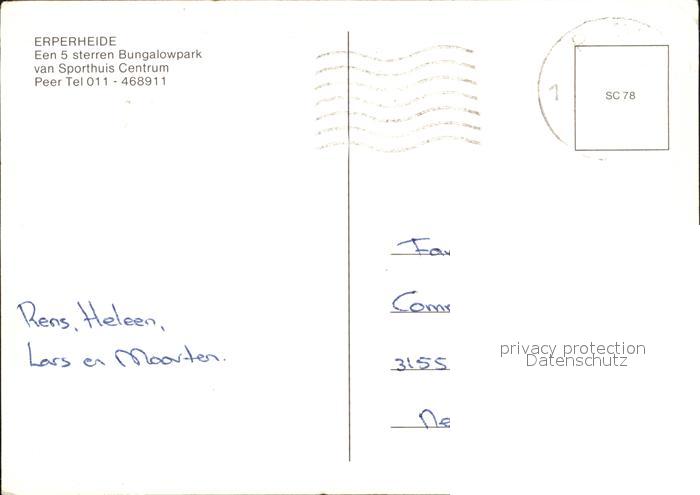 ERPERHEIDE
Een 5 sterren Bungalowpark
van Sporthuis Centrum
Peer Tel 011 - 468911
SC 78
1
Rens, Heleen,
Lars en Maarten.
Fav
Com
3155
Ne
privacy protection
Datenschutz